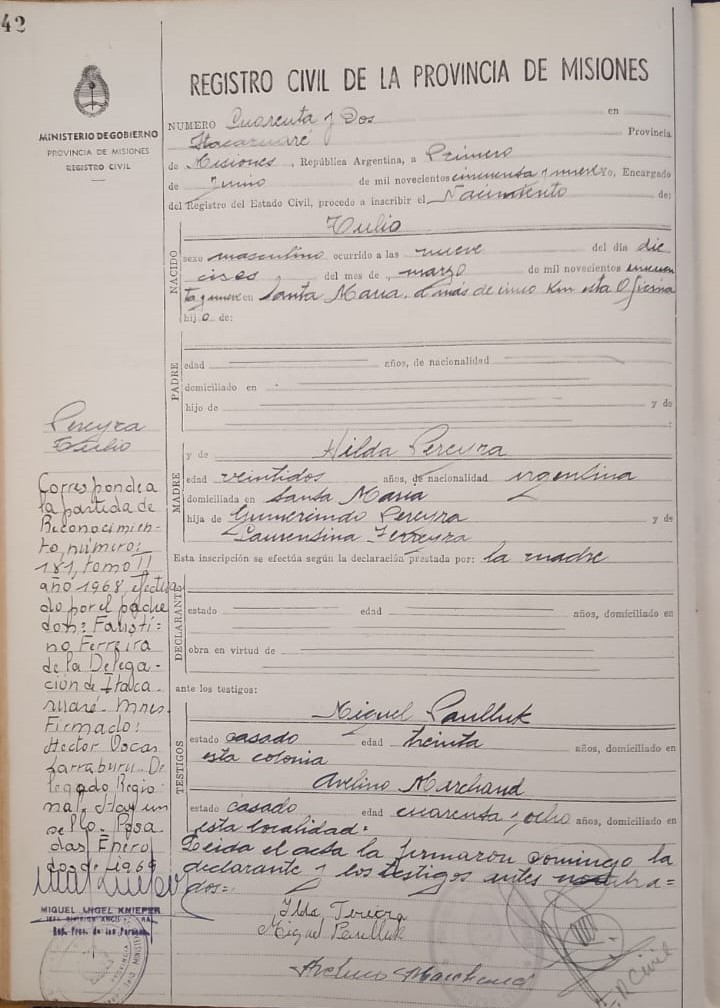 42
MINISTERIO DE GOBIERNO
PROVINCIA DE MISIONES
REGISTRO CIVIL
REGISTRO CIVIL DE LA PROVINCIA DE MISIONES
NUMERO Cuarenta y Dos en
Itacaruaré Provincia
de Misiones, República Argentina, a Primero
de Junio de mil novecientos cincuenta y nueve Yo, Encargado
del Registro del Estado Civil, procedo a inscribir el Nacimiento de:
Tulio
NACIDO
sexo masculino ocurrido a las nueve del día die
ciseis del mes de marzo de mil novecientos cincuen
ta y nueve en Santa Maria. a más de cinco Km esta Oficina
hijo de:
PADRE
edad años, de nacionalidad
domiciliado en
hijo de y de
Pereyra
Tulio
MADRE
y de Hilda Pereyra
edad veintidos años, de nacionalidad argentina
domiciliada en Santa Maria
hija de Gumercindo Pereyra y de
Laurentina Ferreyra
Esta inscripción se efectúa según la declaración prestada por: la madre
DECLARANTE
estado edad años, domiciliado en
obra en virtud de
ante los testigos:
TESTIGOS
Miguel Paulluk
estado casado edad treinta años, domiciliado en
esta colonia
Avelino Marchand
estado casado edad cuarenta y ocho años, domiciliado en
esta localidad=
Leida el acta la firmaron Domingo la
declarante y los testigos antes nombra=
dos=
Corresponde a
la partida de
Reconocimien-
to, número:
181, tomo II
año 1968, efectua
do por el padre
don: Fausti=
no Ferreira
de la Delega-
ción de Itaca
ruaré- Mnes.
Firmado:
Hector Oscar
Larraburu- De
legado Regio
nal. Hay un
sello. Posa
das Enero
dos de 1969
MIGUEL ANGEL KNIEPER
Ilda Pereyra
Miguel Paulluk
Avelino Marchand